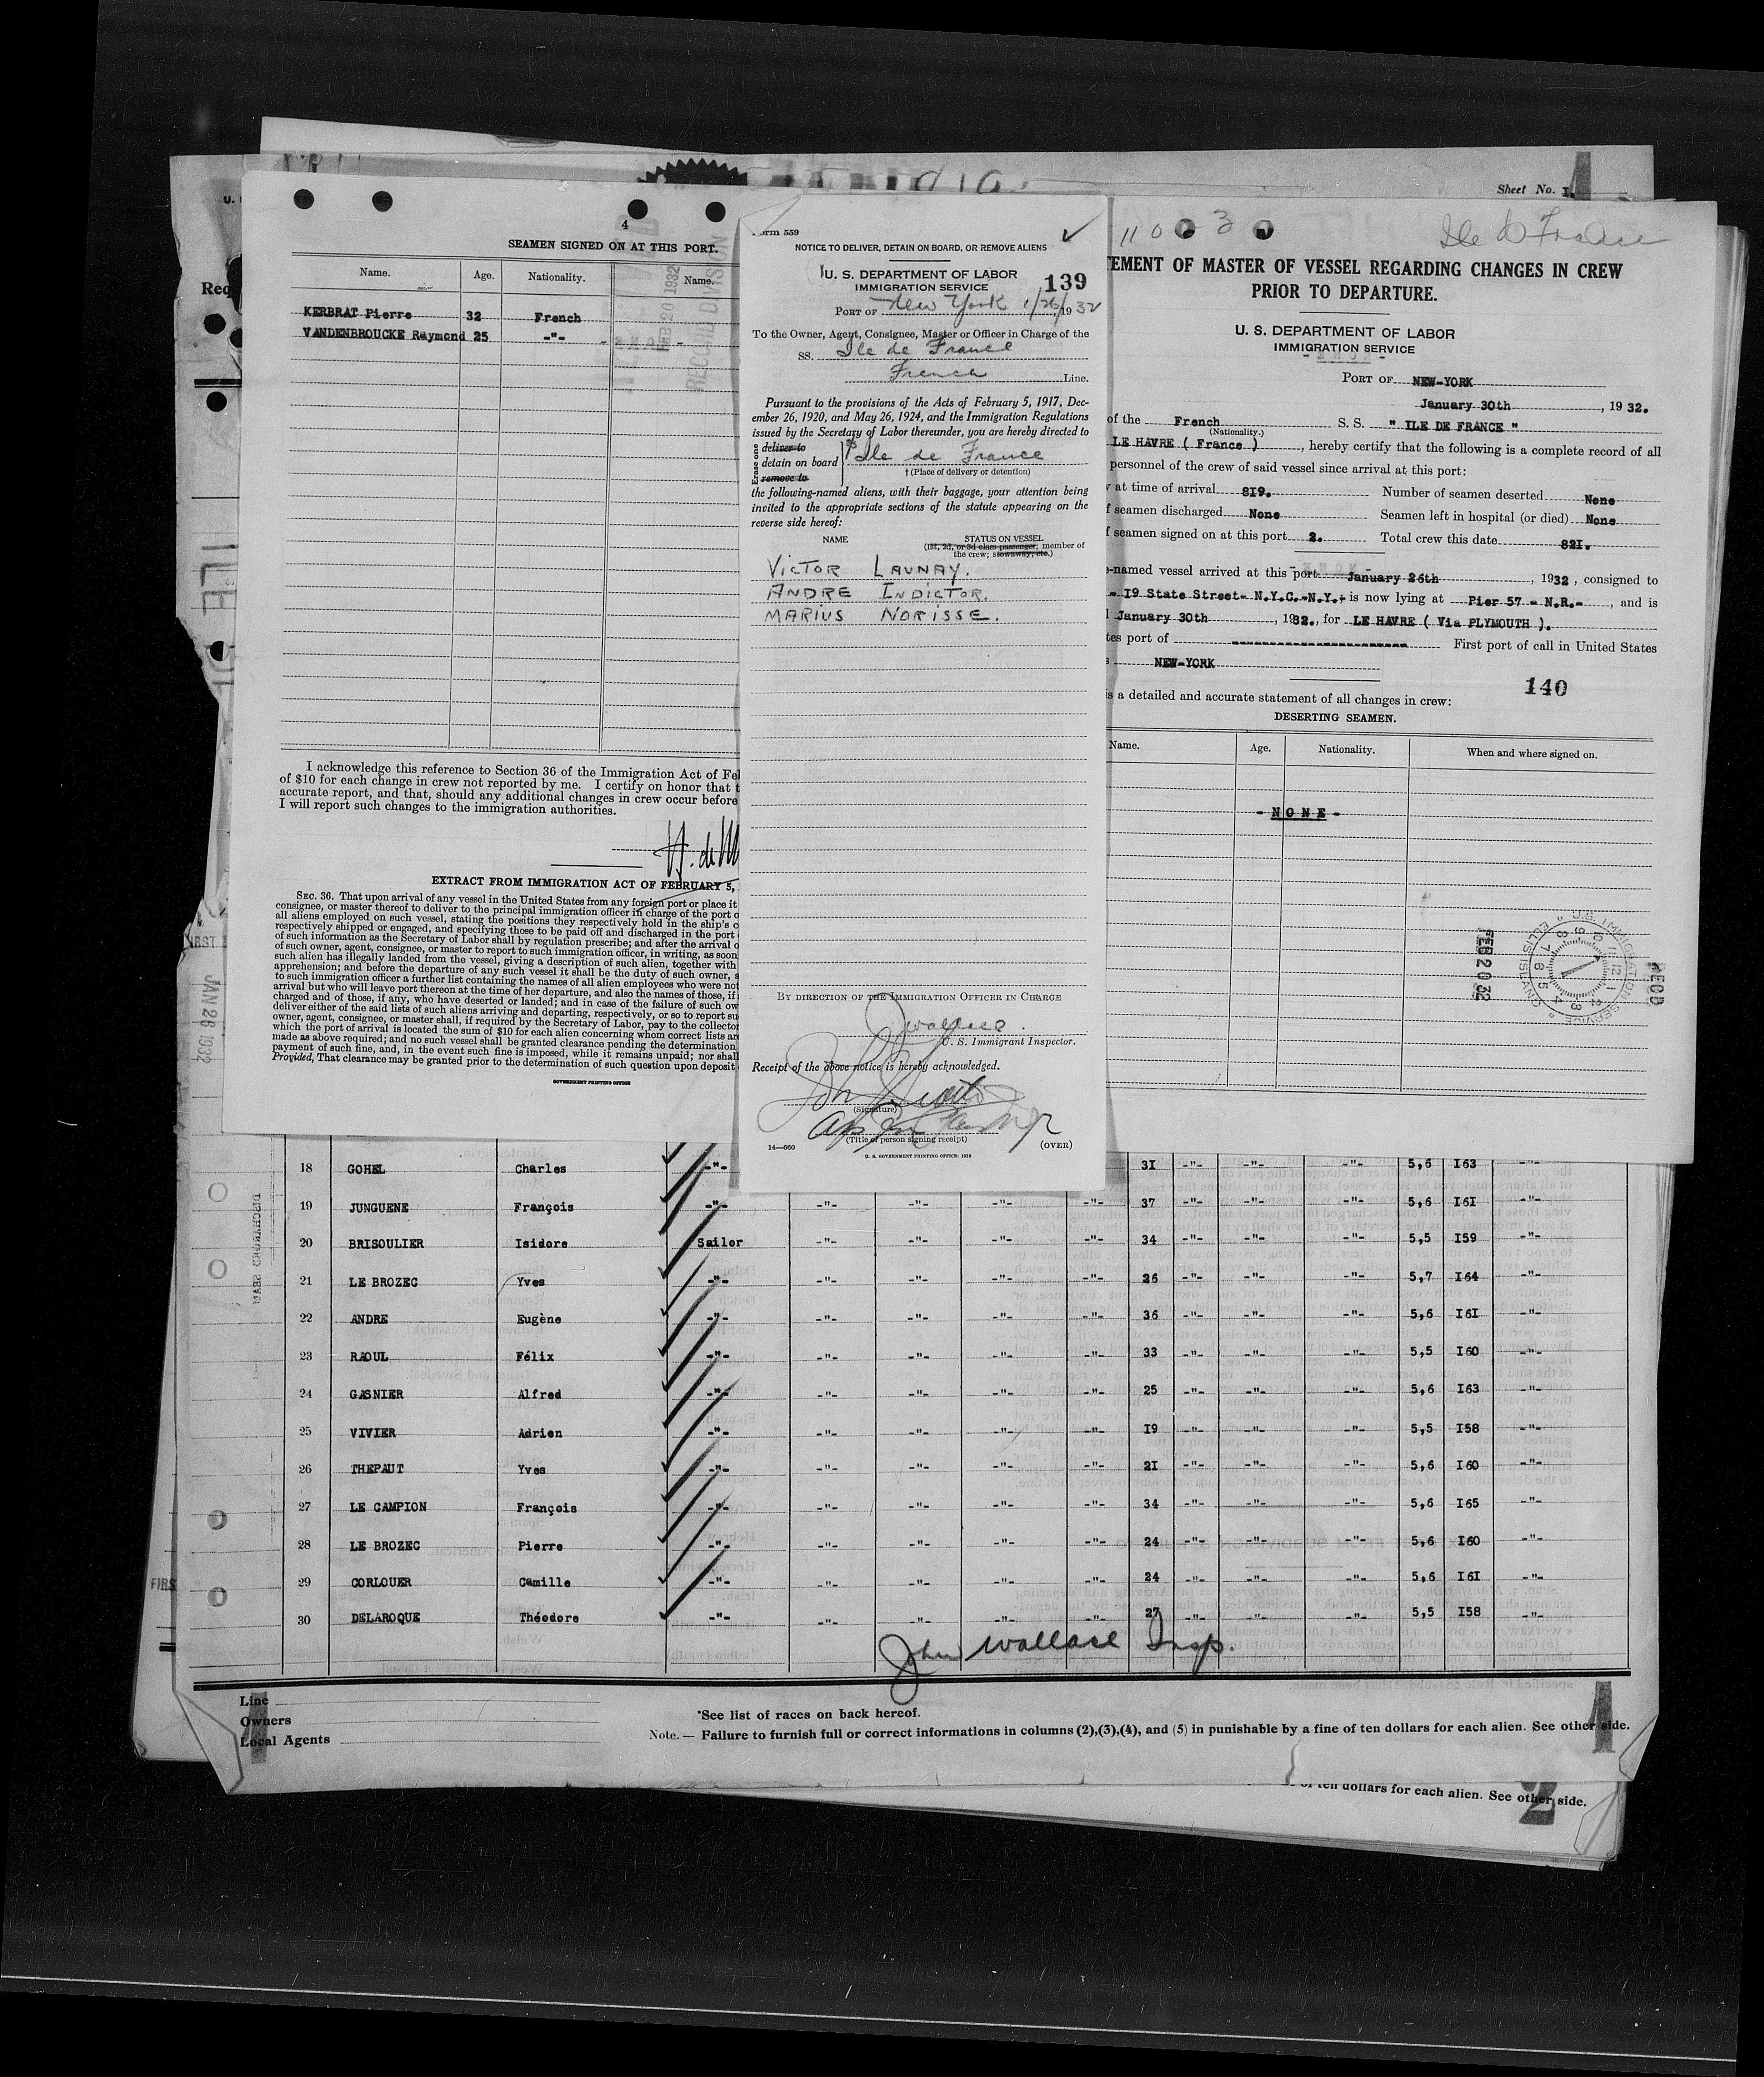 Sheet No. 1.
4
SEAMEN SIGNED ON AT THIS PORT.
Name. Age. Nationality. Name.
KERBRAT Pierre 32 French
VANDENBROUCKE Raymond 25 -"-
FEB 20 1932
RECORD DIVISION
I acknowledge this reference to Section 36 of the Immigration Act of Fe
of $10 for each change in crew not reported by me. I certify on honor that
accurate report, and that, should any additional changes in crew occur before
I will report such changes to the immigration authorities.
H. de
EXTRACT FROM IMMIGRATION ACT OF FEBRUARY 5,
SEC. 36. That upon arrival of any vessel in the United States from any foreign port or place it
consignee, or master thereof to deliver to the principal immigration officer in charge of the port
all aliens employed on such vessel, stating the positions they respectively hold in the ship's
respectively shipped or engaged, and specifying those to be paid off and discharged in the port
of such information as the Secretary of Labor shall by regulation prescribe; and after the arrival
of such owner, agent, consignee, or master to report to such immigration officer, in writing, as soon
such alien has illegally landed from the vessel, giving a description of such alien, together with
apprehension; and before the departure of any such vessel it shall be the duty of such owner,
to such immigration officer a further list containing the names of all alien employees who were not
arrival but who will leave port thereon at the time of her departure, and also the names of those, if
charged and of those, if any, who have deserted or landed; and in case of the failure of such
deliver either of the said lists of such aliens arriving and departing, respectively, or so to report
owner, agent, consignee, or master shall, if required by the Secretary of Labor, pay to the collector
which the port of arrival is located the sum of $10 for each alien concerning whom correct lists
made as above required; and no such vessel shall be granted clearance pending the determination
payment of such fine, and, in the event such fine is imposed, while it remains unpaid; nor shall
Provided, That clearance may be granted prior to the determination of such question upon deposit
GOVERNMENT PRINTING OFFICE
JAN 26 1932
Form 559
NOTICE TO DELIVER, DETAIN ON BOARD, OR REMOVE ALIENS
U. S. DEPARTMENT OF LABOR
IMMIGRATION SERVICE 139
PORT OF New York 1/26/1932
To the Owner, Agent, Consignee, Master or Officer in Charge of the
SS. Ile de France
French Line.
Pursuant to the provisions of the Acts of February 5, 1917, Dec-
ember 26, 1920, and May 26, 1924, and the Immigration Regulations
issued by the Secretary of Labor thereunder, you are hereby directed to
Erase one
deliver to
detain on board Ile de France
remove to
†(Place of delivery or detention)
the following-named aliens, with their baggage, your attention being
invited to the appropriate sections of the statute appearing on the
reverse side hereof:
NAME STATUS ON VESSEL
(1st, 2d, or 3d class passenger; member of
the crew; stowaway; etc.)
VICTOR LAUNAY.
ANDRE INDICTOR.
MARIUS NORISSE.
BY DIRECTION OF THE IMMIGRATION OFFICER IN CHARGE
J Wallace.
U. S. Immigrant Inspector.
Receipt of the above notice is hereby acknowledged.
(Signature)
(Title of person signing receipt)
14—660 (OVER)
U. S. GOVERNMENT PRINTING OFFICE: 1929
Ile de France
STATEMENT OF MASTER OF VESSEL REGARDING CHANGES IN CREW
PRIOR TO DEPARTURE.
U. S. DEPARTMENT OF LABOR
IMMIGRATION SERVICE
PORT OF NEW-YORK
January 30th, 1932.
of the French S. S. " ILE DE FRANCE "
(Nationality.)
LE HAVRE ( France ), hereby certify that the following is a complete record of all
personnel of the crew of said vessel since arrival at this port:
at time of arrival 819. Number of seamen deserted None
f seamen discharged None Seamen left in hospital (or died) None
f seamen signed on at this port 2. Total crew this date 821.
-named vessel arrived at this port January 26th, 1932, consigned to
- 19 State Street- N.Y.C.-N.Y.; is now lying at Pier 57 - N.R.-, and is
January 30th, 1932., for LE HAVRE ( Via PLYMOUTH ).
tes port of ---------- First port of call in United States
NEW-YORK
140
is a detailed and accurate statement of all changes in crew:
DESERTING SEAMEN.
Name. Age. Nationality. When and where signed on.
- N O N E -
FEB 20 32
U.S. IMMIGRATION SERVICE
ELLIS ISLAND
REC'D
18 GOHEL Charles -"- 31 -"- -"- -"- 5,6 163 -"-
19 JUNGUENE François -"- -"- -"- -"- -"- 37 -"- -"- -"- 5,6 161 -"-
20 BRISOULIER Isidore Sailor -"- -"- -"- -"- 34 -"- -"- -"- 5,5 159 -"-
21 LE BROZEC Yves -"- -"- -"- -"- -"- 26 -"- -"- -"- 5,7 164 -"-
22 ANDRE Eugène -"- -"- -"- -"- -"- 36 -"- -"- -"- 5,6 161 -"-
23 RAOUL Félix -"- -"- -"- -"- -"- 33 -"- -"- -"- 5,5 160 -"-
24 GASNIER Alfred -"- -"- -"- -"- -"- 25 -"- -"- -"- 5,6 163 -"-
25 VIVIER Adrien -"- -"- -"- -"- -"- 19 -"- -"- -"- 5,5 158 -"-
26 THEPAUT Yves -"- -"- -"- -"- -"- 21 -"- -"- -"- 5,6 160 -"-
27 LE CAMPION François -"- -"- -"- -"- -"- 34 -"- -"- -"- 5,6 165 -"-
28 LE BROZEC Pierre -"- -"- -"- -"- -"- 24 -"- -"- -"- 5,6 160 -"-
29 CORLOUER Camille -"- -"- -"- -"- -"- 24 -"- -"- -"- 5,6 161 -"-
30 DELAROQUE Théodore -"- -"- -"- -"- -"- 27 -"- -"- -"- 5,5 158 -"-
John Wallace Insp.
Line
Owners
Local Agents
*See list of races on back hereof.
Note. — Failure to furnish full or correct informations in columns (2),(3),(4), and (5) in punishable by a fine of ten dollars for each alien. See other side.
of ten dollars for each alien. See other side.
2